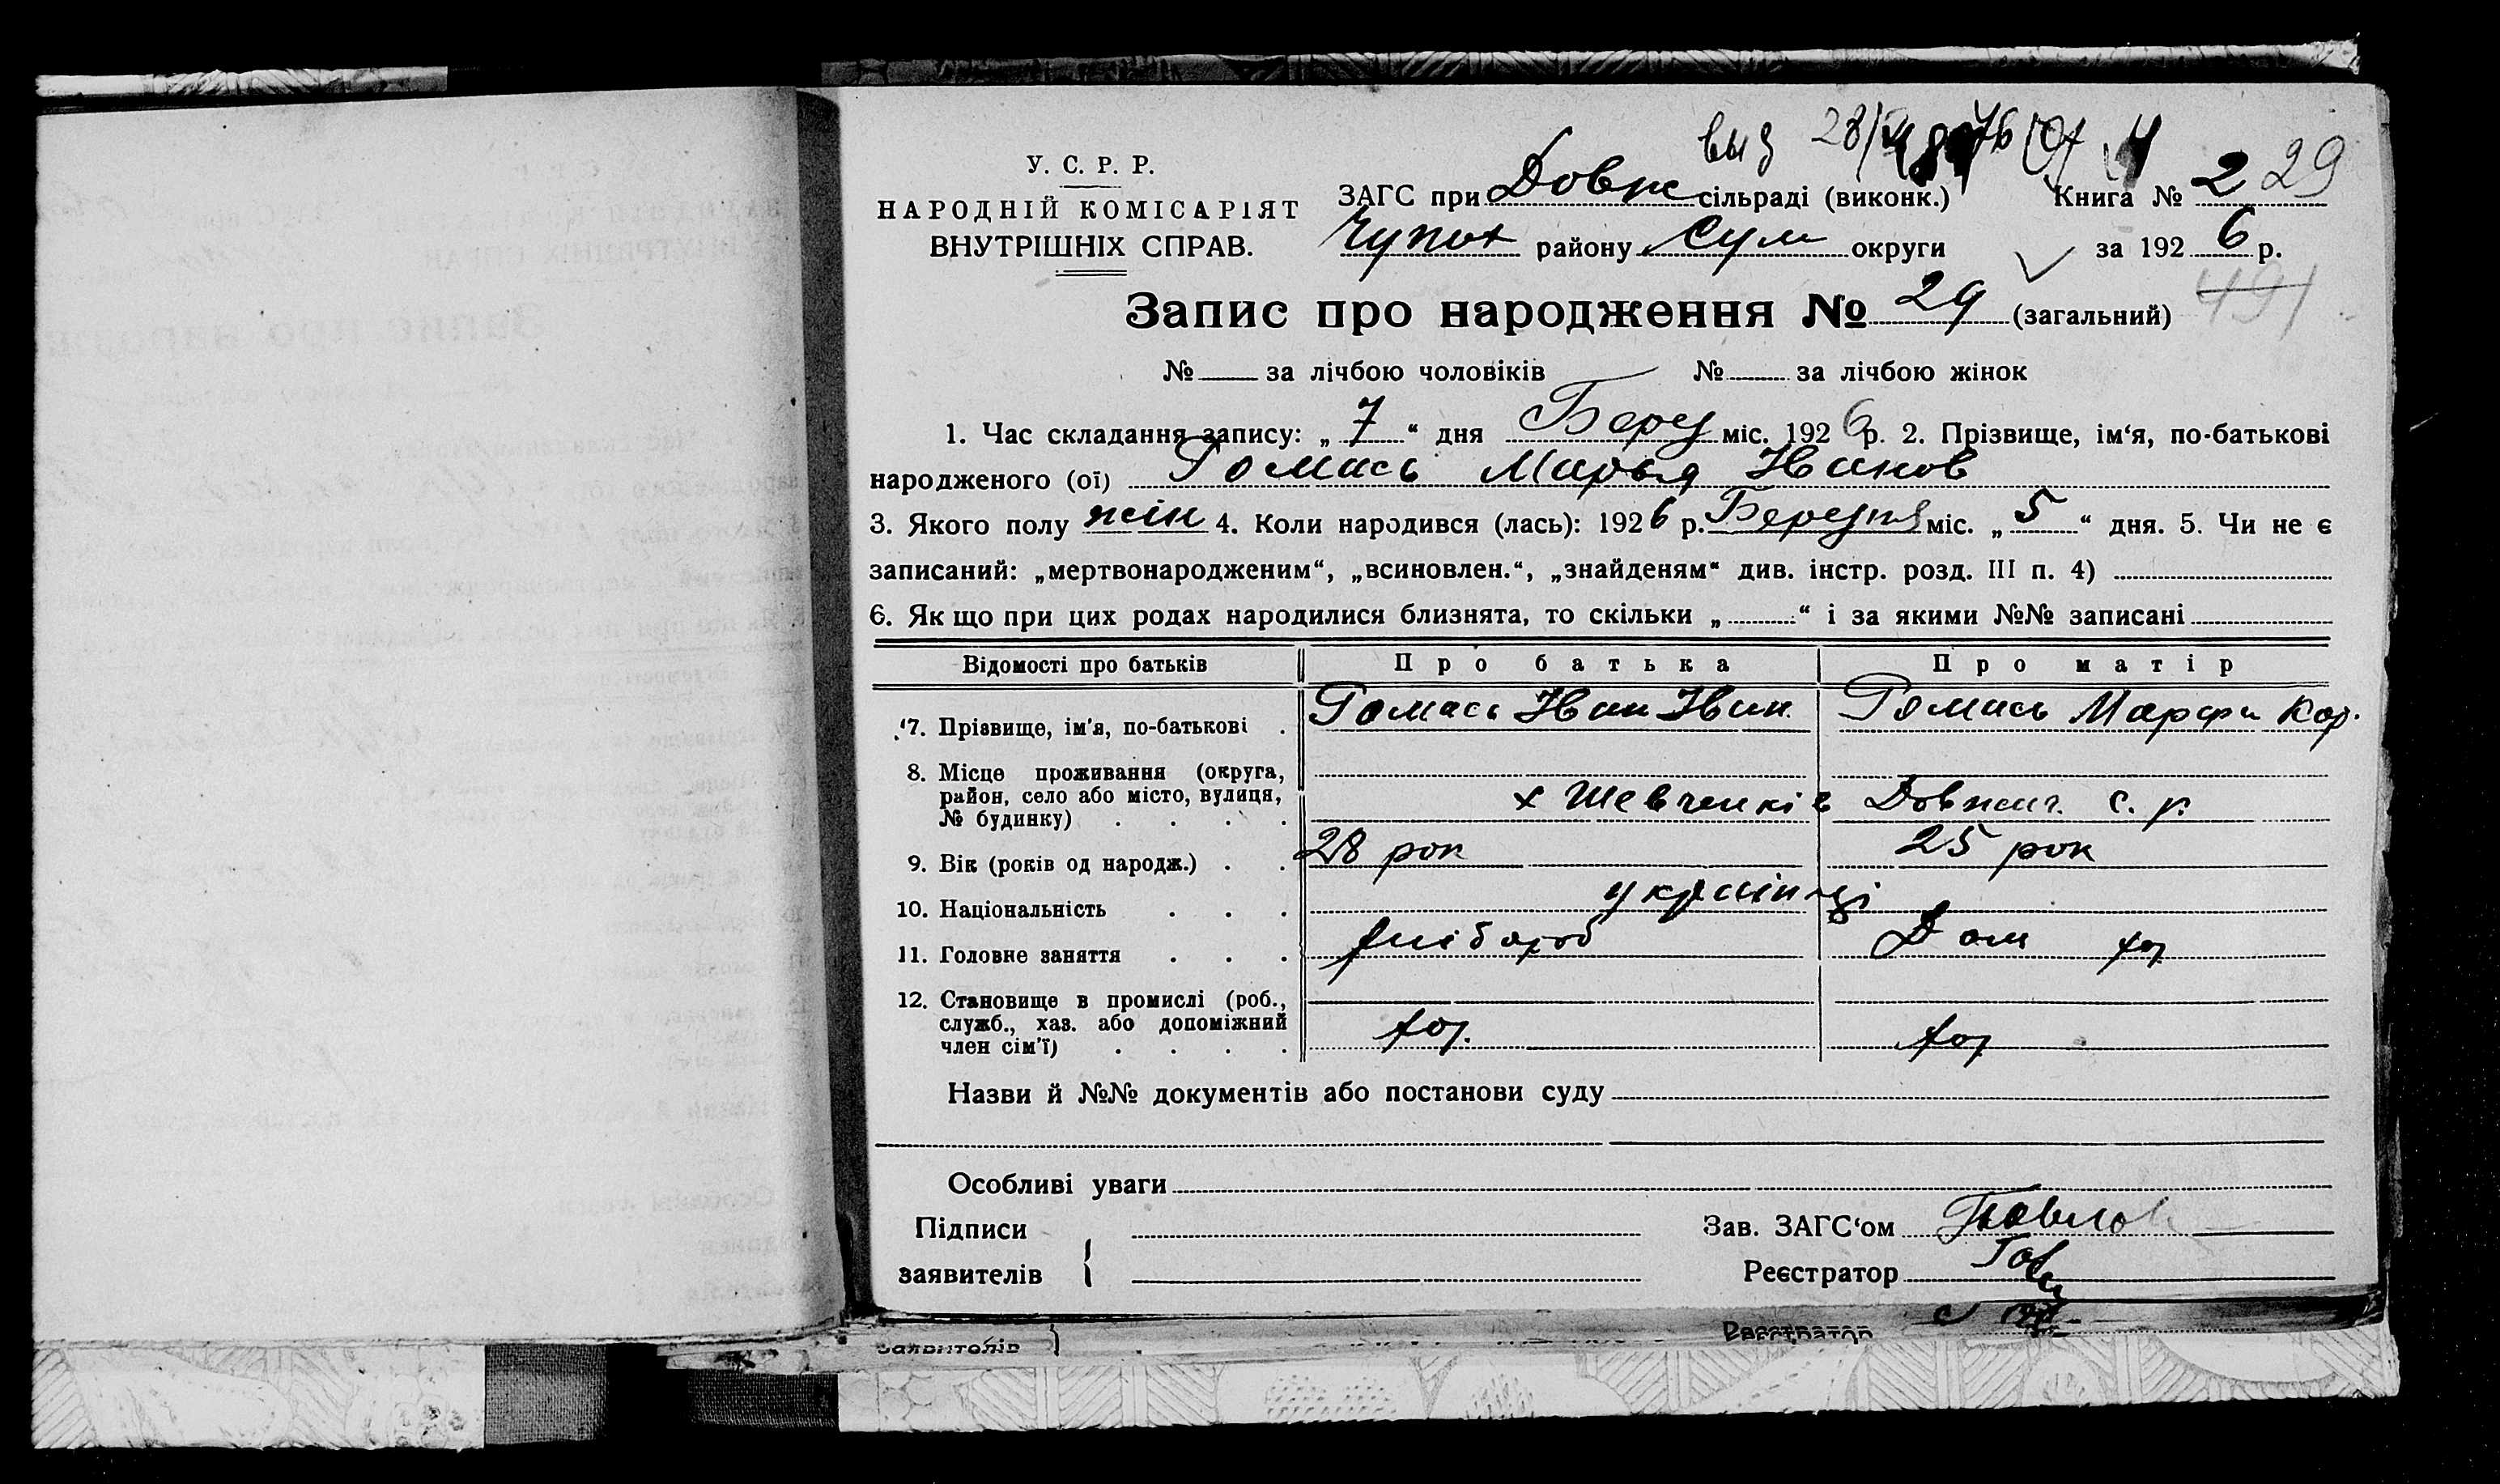 выд 28/
У. С. Р. Р.
НАРОДНІЙ КОМІСАРІЯТ
ВНУТРІШНІХ СПРАВ.
ЗАГС при Довж сільраді (виконк.) Книга № 2 29
Чупах району Сум округи за 192 6 р.
Запис про народження № 29 (загальний) 491
№ за лічбою чоловіків № за лічбою жінок
1. Час складання запису: „ 7 “ дня Берез міс. 192 6 р. 2. Прізвище, ім‘я, по-батькові
народженого (ої) Ромась Марья Иванов
3. Якого полу жін 4. Коли народився (лась): 192 6 р. Березня міс. „ 5 “ дня. 5. Чи не є
записаний: „мертвонародженим“, „всиновлен.“, „знайденям“ див. інстр. розд. III п. 4)
6. Як що при цих родах народилися близнята, то скільки „ “ і за якими №№ записані
Відомості про батьків Про батька Про матір
7. Прізвище, ім'я, по-батькові Ромась Иван Иван. Ромась Марфа Кор.
8. Місце проживання (округа,
район, село або місто, вулиця, х Шевченків Довжич. с. р.
№ будинку)
9. Вік (років од народж.) 28 рок 25 рок
10. Національність українці
11. Головне заняття хлібороб Дом хоз
12. Становище в промислі (роб.,
служб., хаз. або допоміжний
член сім'ї) хоз. хоз
Назви й №№ документів або постанови суду
Особливі уваги
Підписи Зав. ЗАГС‘ом
заявителів { Реєстратор
заявителів } Реєстратор